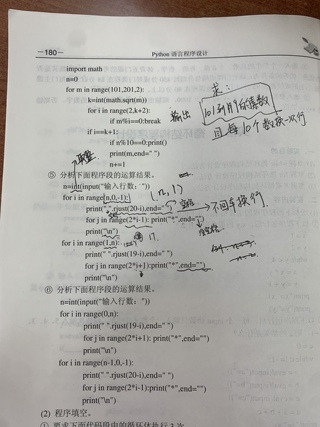 —180— Python 语言程序设计
import math
n=0
for m in range(101,201,2):
k=int(math.sqrt(m))
for i in range(2,k+2):
if m%i==0:break
if i==k+1:
if n%10==0:print()
print(m,end=" ")
n+=1
求:
输出
101到199素数
且每10个数换一行
⑤ 分析下面程序段的运算结果。
n=int(input("输入行数: "))
for i in range(n,0,-1):
(n,1)
print(" ".rjust(20-i),end=" ")
不回车换行.
for j in range(2*i-1): print("*",end=" ")
print("\n")
for i in range(1,n):
print(" ".rjust(19-i),end=" ")
for j in range(2*i+1):print("*",end=" ")
print("\n")
⑥ 分析下面程序段的运算结果。
n=int(input("输入行数: "))
for i in range(0,n):
print(" ".rjust(19-i),end=" ")
for j in range(2*i+1): print("*",end="")
print("\n")
for i in range(n-1,0,-1):
print(" ".rjust(20-i),end=" ")
for j in range(2*i-1):print("*",end="")
print("\n")
(2) 程序填空。
① 要求下面代码段中的循环体执行 3 次